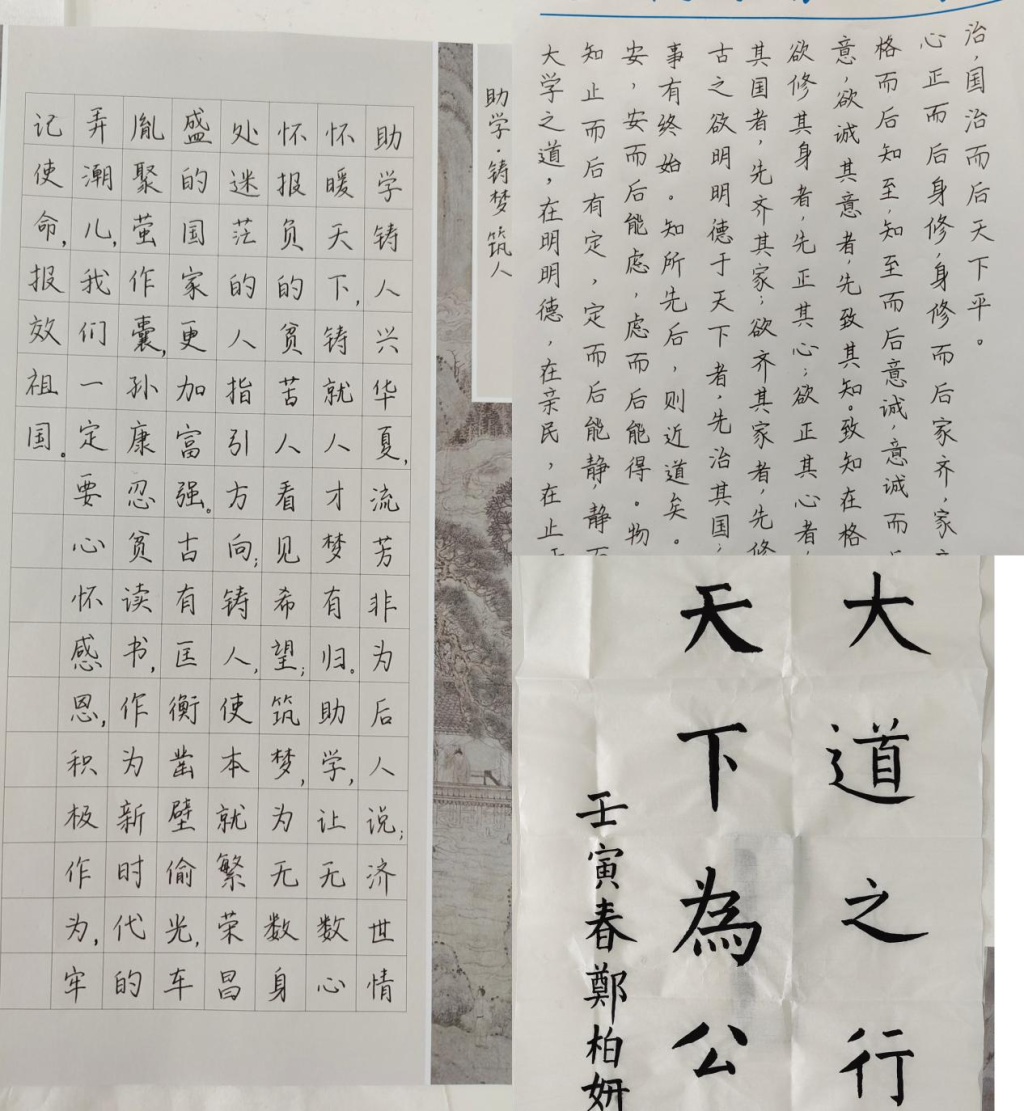 助学·铸梦筑人
助学铸人兴华夏,流芳非为后人说;济世情
怀暖天下,铸就人才梦有归。助学,让无数心
怀报负的贫苦人看见希望;筑梦,为无数身
处迷茫的人指引方向;铸人,使本就繁荣昌
盛的国家更加富强。古有匡衡凿壁偷光,车
胤聚萤作囊,孙康忍贫读书,作为新时代的
弄潮儿,我们一定要心怀感恩,积极作为,牢
记使命,报效祖国。
大学之道,在明明德,在亲民,在止
知止而后有定,定而后能静,静
安,安而后能虑,虑而后能得。物
事有终始。知所先后,则近道矣。
古之欲明明德于天下者,先治其国;
其国者,先齐其家;欲齐其家者,先修
欲修其身者,先正其心;欲正其心者,
意,欲诚其意者,先致其知。致知在格
格而后知至,知至而后意诚,意诚而
心正而后身修,身修而后家齐,家
治,国治而后天下平。
大道之行
天下為公
壬寅春鄭柏妍